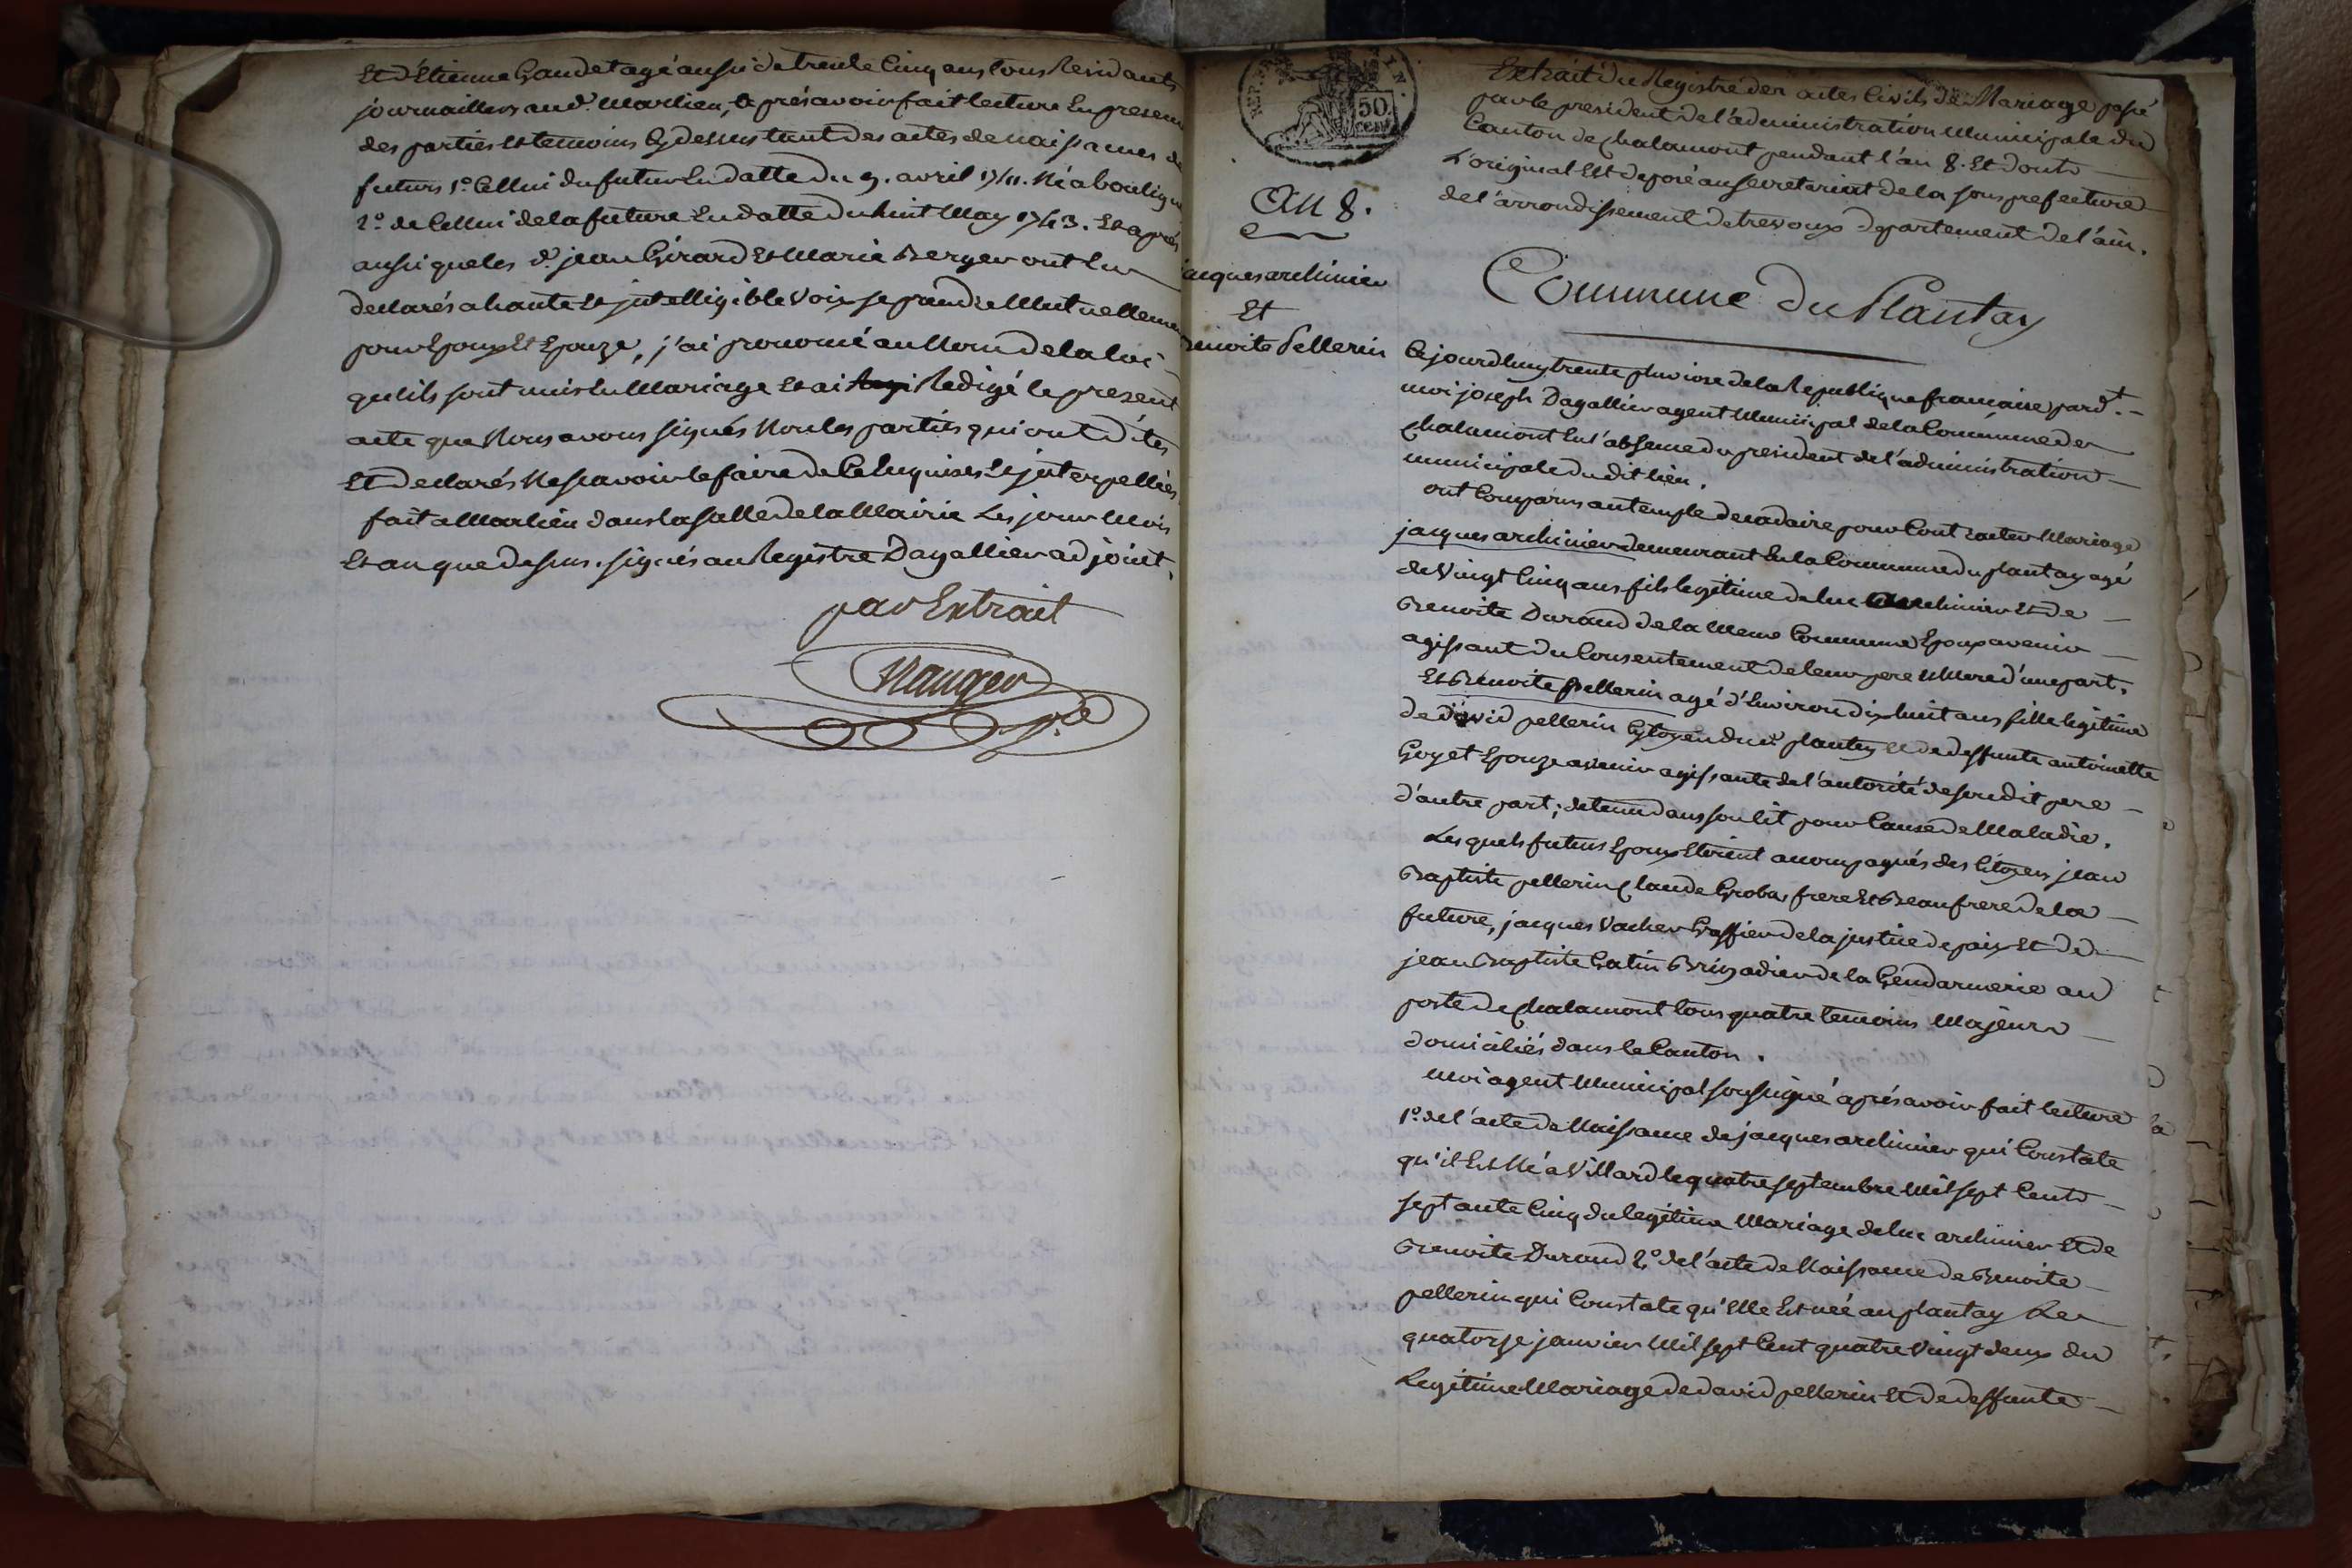 Et d'Etienne Gaudet agé aussi de trente Cinq ans tous Residants
journailliers aud.t Marlieu, apres avoir fait lecture En presence
des parties et temoins Cy dessus tant des actes de naissances de
futurs 1.º Cellui du futur En datte du 9. avril 1741. Né a bouligneux
2.º de Cellui de la future En datte du huit May 1743. Et après
aussi que les d.s jean Girard Et Marie Berger ont Eu
declarés a haute Et jntelligible voix se prendre Mutuellement
pour Epoux Et Epouze, j'ai prononcé au Nom de la loi
qu'ils sont unis En Mariage Et ai Redigé le present
acte que Nous avons signés Non les partiés qui ont dites
Et declarés Ne scavoir le faire de Ce Enquises Et jnterpellées
fait a Marlieu dans la salle de la Mairie Les jour Mois
Et an que dessus. signés au Registre Dagallier adjoint.
par Extrait
Mauger
REP. FRA
50 cent
AIN.
An 8.
jacques archinier
Et
Benoite Pellerin
Extrait du Registre des actes Civils de Mariage passé
par le president de l'administration Municipale du
Canton de Chalamont pendant l'an 8. Et dont
L'original Est deposé au secretariat de la sous prefecture
de l'arrondissement de trevoux departement de l'ain.
Commune du Plantay
Cejourdhuy trente pluviose de la Republique francaise pard.t
moi joseph Dagallier agent Municipal de la Commune de
Chalamont En l'absence du president de l'administration
municipale du dit lieu.
ont Comparus au temple decadaire pour Contracter Mariage
jacques archinier demeurant En la Commune du plantay agé
de Vingt Cinq ans fils legitime de luc archinier Et de
Benoite Durand de la Meme Commune Epoux avenir
agissant du Consentement de leur pere Mere d'une part.
Et Benoite pellerin agé d'Environ dix huit ans fille legitime
de david pellerin Cytoyen dud.t plantey et de deffunte antoinette
Goyet Epouze avenir agissante de l'autorité de son dit pere
d'autre part; detenu dans son lit pour Cause de Maladie.
Les quels futurs Epoux Etoient acompagnés des Citoyen jean
Baptiste pellerin Claude Grobas frere Et Beaufrere de la
future, jacques Vacher Greffier de la justice de paix Et de
jean Baptiste Gatin Brigadier de la Gendarmerie au
poste de Chalamont tous quatre temoins Majeurs
domiciliés dans le Canton.
Moi agent Municipal soussigné après avoir fait lecture
1.º de l'acte de Naissance de jacques archinier qui Constate
qu'il Est Né a Villard le quatre septembre Mil sept Cent
septante Cinq du legitime Mariage de luc archinier Et de
Benoite Durand 2.º de l'acte de Naissance de Benoite
pellerin qui Constate qu'Elle Est neé au plantay Le
quatorze janvier Mil sept Cent quatre Vingt deux du
Legitime Mariage de david pellerin Et de deffunte